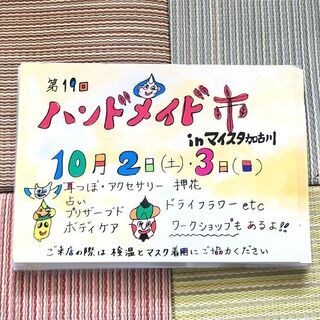 第19回
ハンドメイド市
inマイスタ加古川
10月2日(土)・3日(日)
耳つぼ・アクセサリー 押花
占い
プリザーブド ドライフラワー etc
ボディケア ワークショップも あるよ!!
ご来店の際は 検温とマスク着用に ご協力ください